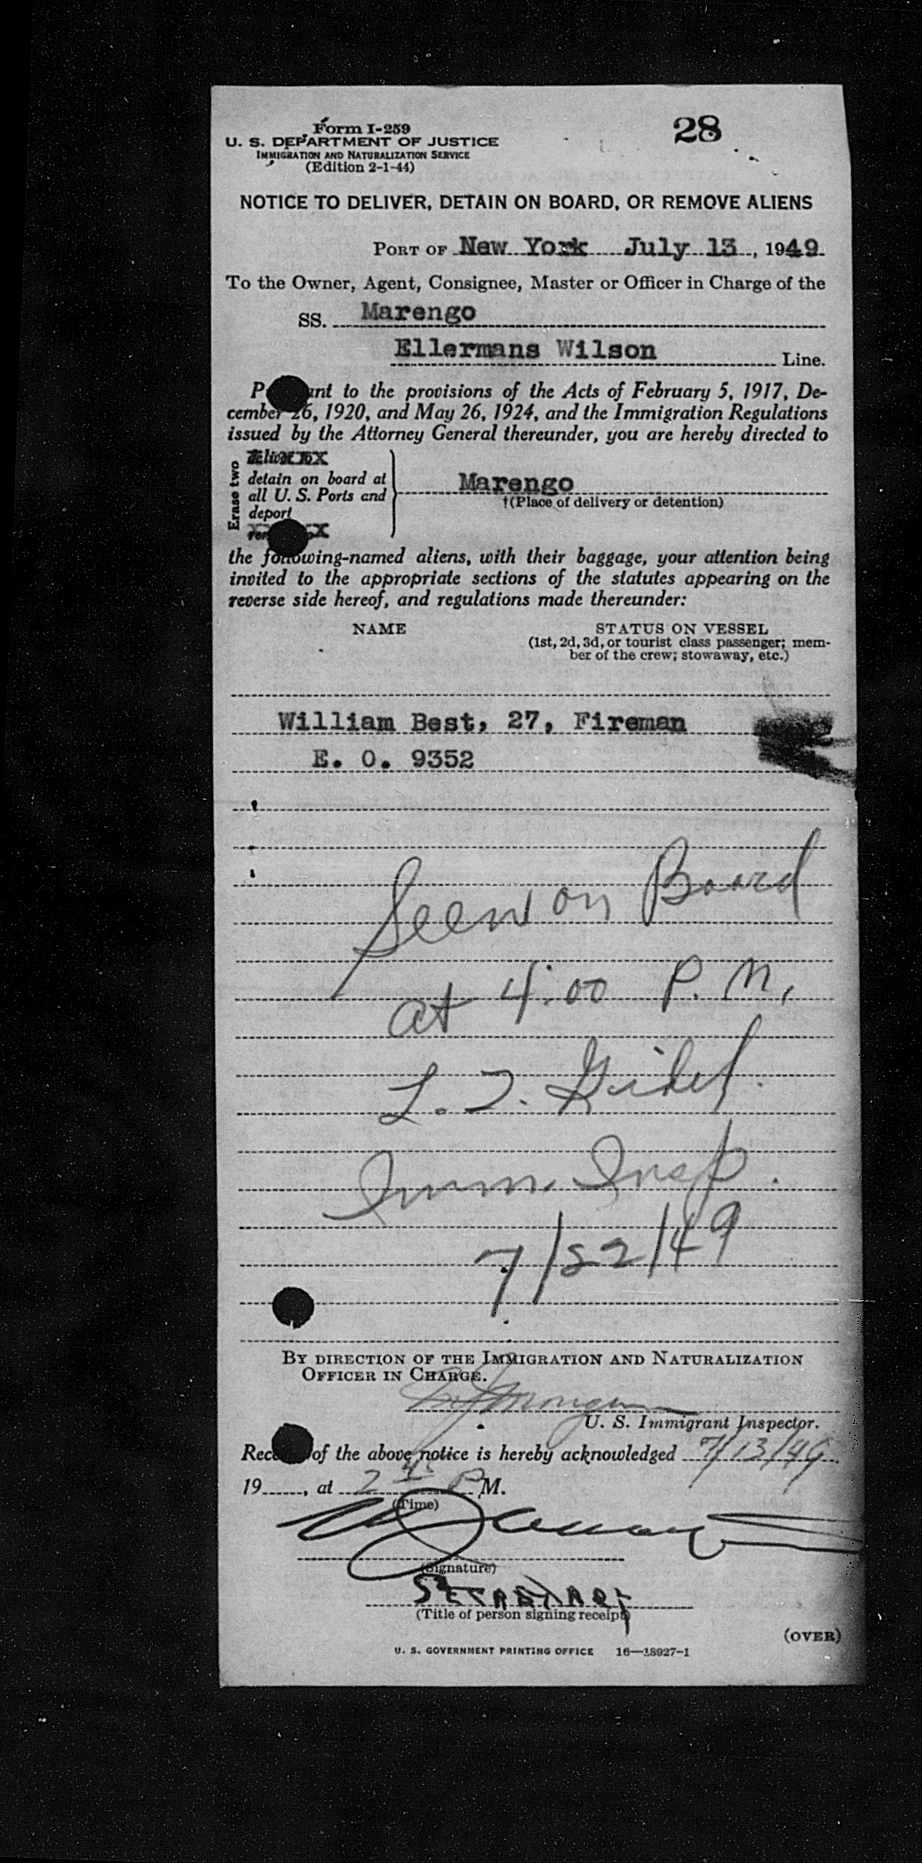 Form I-259
28
U. S. DEPARTMENT OF JUSTICE
IMMIGRATION AND NATURALIZATION SERVICE
(Edition 2-1-44)
NOTICE TO DELIVER, DETAIN ON BOARD, OR REMOVE ALIENS
PORT OF New York July 13, 1949
To the Owner, Agent, Consignee, Master or Officer in Charge of the
SS. Marengo
Ellermans Wilson Line.
to the provisions of the Acts of February 5, 1917, De-
cember 26, 1920, and May 26, 1924, and the Immigration Regulations
issued by the Attorney General thereunder, you are hereby directed to
Erase two
detain on board at
all U. S. Ports and
deport
Marengo
†(Place of delivery or detention)
the following-named aliens, with their baggage, your attention being
invited to the appropriate sections of the statutes appearing on the
reverse side hereof, and regulations made thereunder:
NAME
STATUS ON VESSEL
(1st, 2d, 3d, or tourist class passenger; mem-
ber of the crew; stowaway, etc.)
William Best, 27, Fireman
E. O. 9352
Seen on Board
at 4:00 P. M.
Imm. Insp.
7/22/49
BY DIRECTION OF THE IMMIGRATION AND NATURALIZATION
OFFICER IN CHARGE.
U. S. Immigrant Inspector.
of the above notice is hereby acknowledged 7/13/49,
19, at 2 P M.
(Time)
(Signature)
SECRETARY
(Title of person signing receipt)
(OVER)
U. S. GOVERNMENT PRINTING OFFICE 16—18927-1